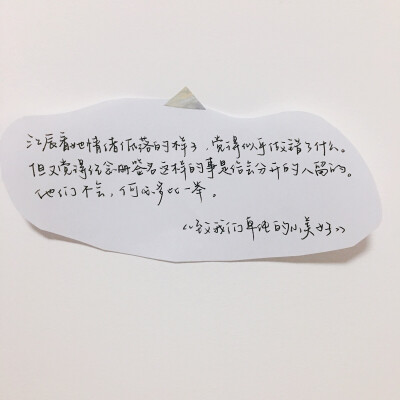 江辰看她情绪低落的样子,觉得似乎做错了什么。
但又觉得纪念册签名这样的事是给会分开的人留的。
他们不会,何必多此一举。
《致我们单纯的小美好》